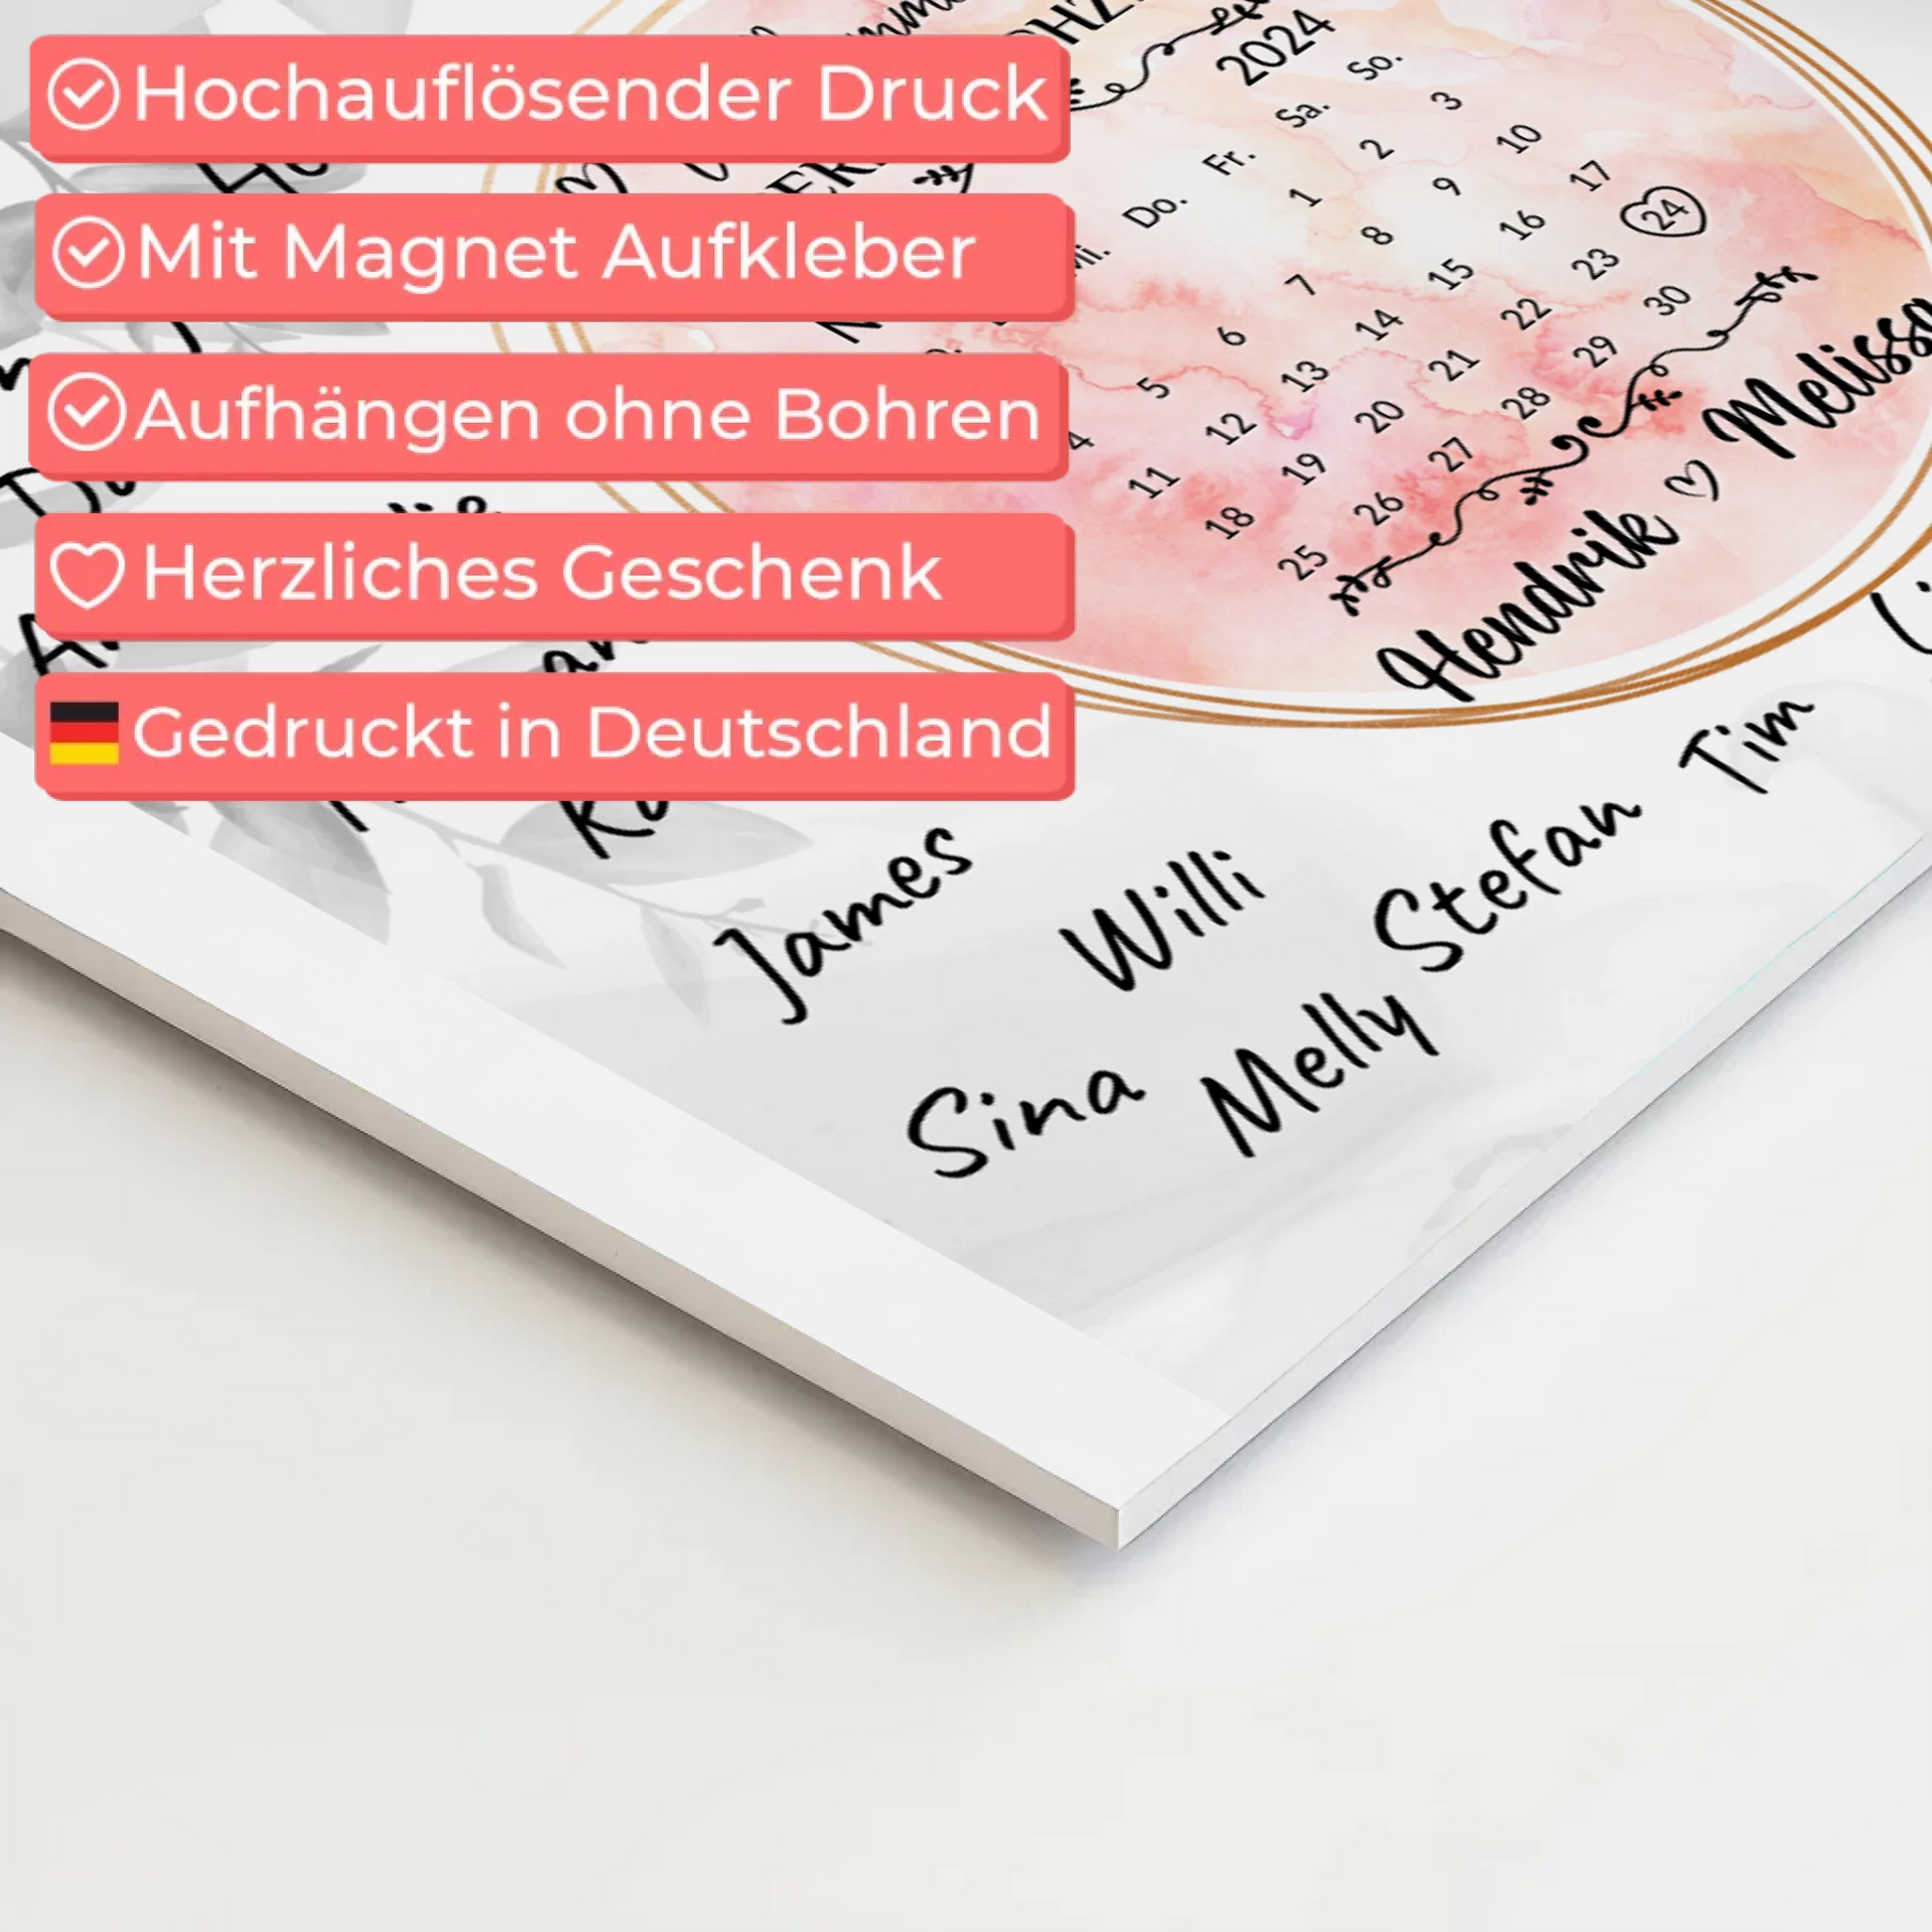 Hochauflösender Druck
Mit Magnet Aufkleber
Aufhängen ohne Bohren
Herzliches Geschenk
Gedruckt in Deutschland
2024
Do. Fr. Sa. So.
1 2 3
4 5 6 7 8 9 10
11 12 13 14 15 16 17
18 19 20 21 22 23 24
25 26 27 28 29 30
Hendrik ♡ Melissa
James Willi Stefan Tim
Sina Melly